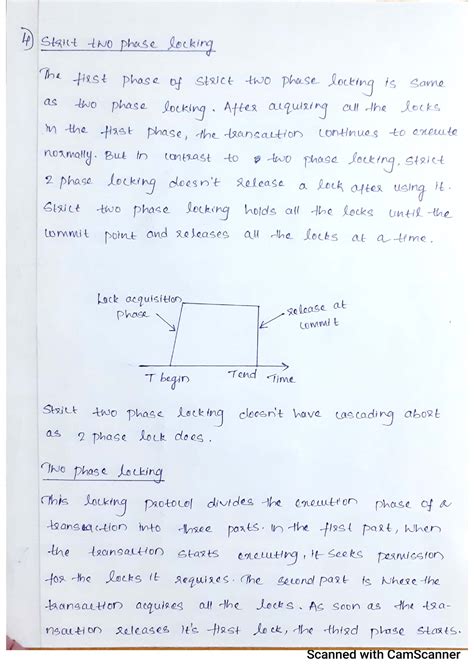 4) Strict two phase locking
The first phase of strict two phase locking is same
as two phase locking. After acquiring all the locks
in the first phase, the transaction continues to execute
normally. But in contrast to two phase locking, strict
2 phase locking doesn't release a lock after using it.
Strict two phase locking holds all the locks until the
commit point and releases all the locks at a time.
Lock acquisition
phase
release at
commit
T begin
Tend
Time
Strict two phase locking doesn't have cascading abort
as 2 phase lock does.
Two phase locking
This locking protocol divides the execution phase of a
transaction into three parts. In the first part, when
the transaction starts executing, it seeks permission
for the locks it requires. The second part is where the
transaction acquires all the locks. As soon as the tra-
nsaction releases it's first lock, the third phase starts.
Scanned with CamScanner